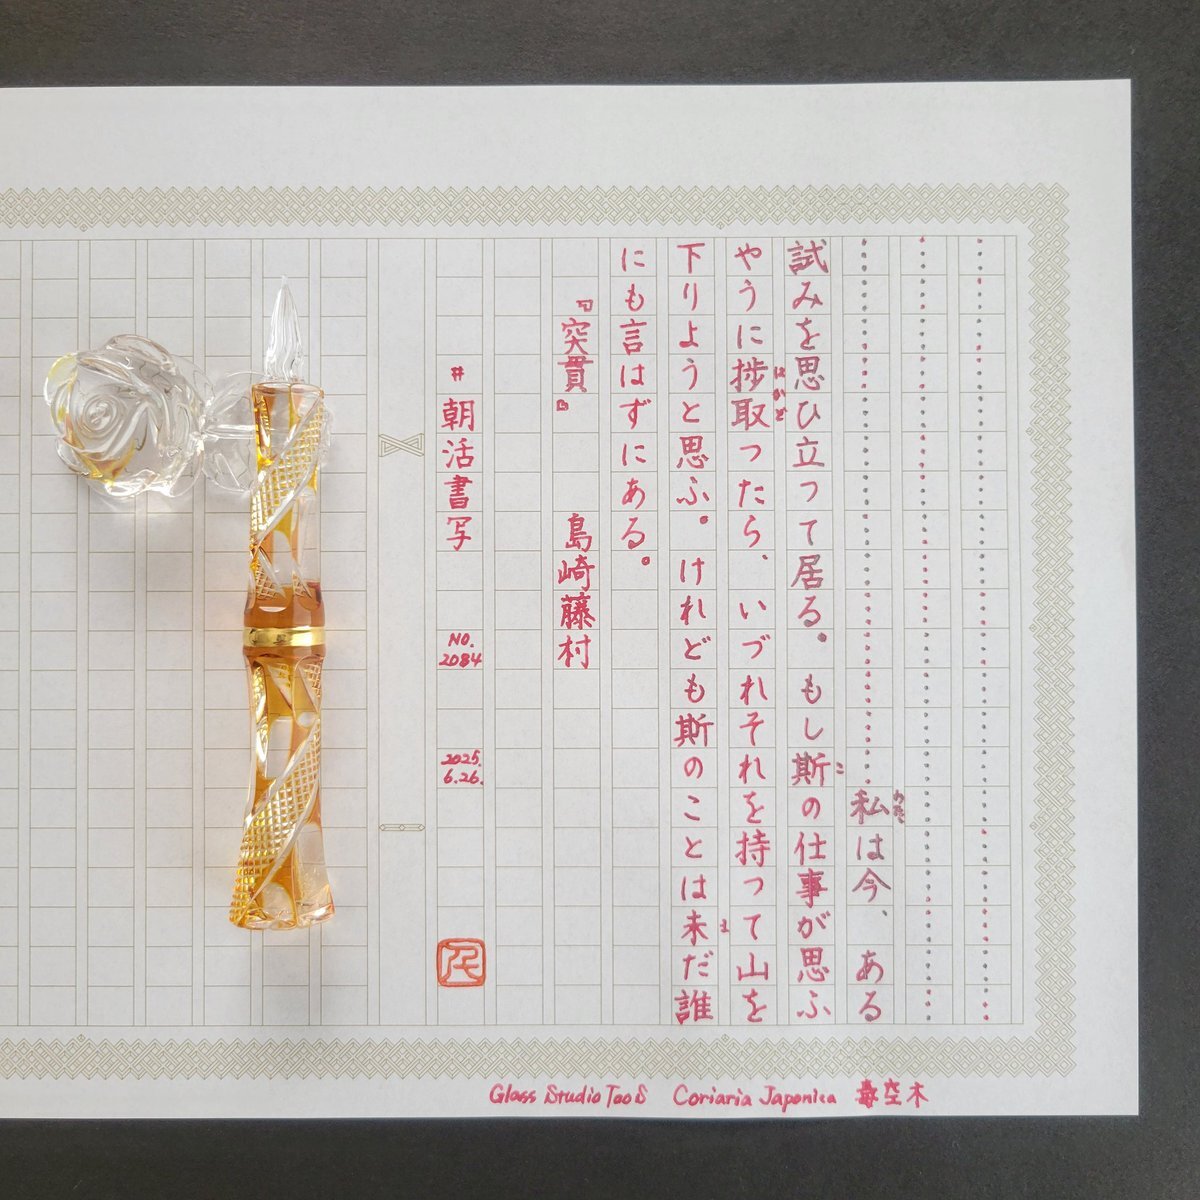 ………………………………………
………………………………………
…………………………私は今、ある
試みを思ひ立つて居る。もし斯の仕事が思ふ
やうに捗取つたら、いづれそれを持つて山を
下りようと思ふ。けれども斯のことは未だ誰
にも言はずにある。
『突貫』　島崎藤村
#朝活書写　NO.2084　2025.6.26.
Glass Studio TooS　Coriaria Japonica　毒空木